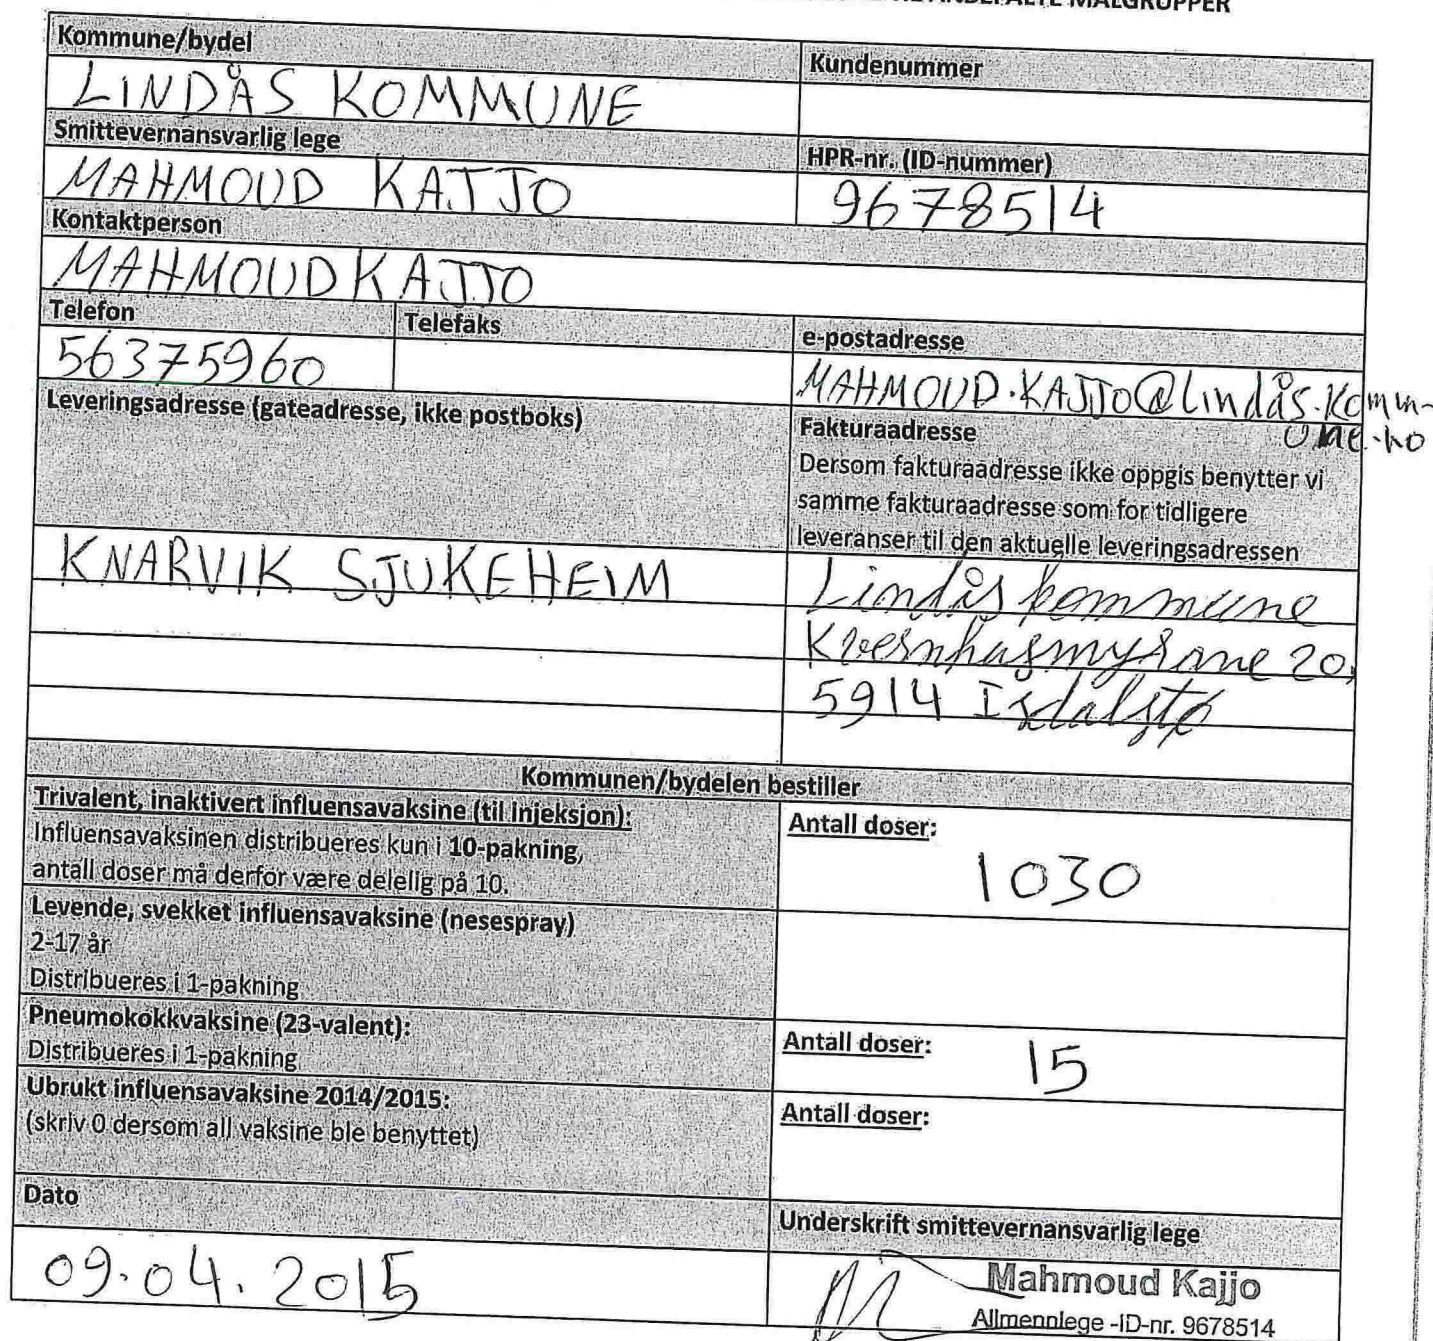 MÅLGRUPPER
Kommune/bydel
Kundenummer
LINDÅS KOMMUNE
Smittevernansvarlig lege
HPR-nr. (ID-nummer)
MAHMOUD KAJJO
9678514
Kontaktperson
MAHMOUD KAJJO
Telefon
Telefaks
e-postadresse
56375960
MAHMOUD.KAJJO@Lindås.Komm-
une.no
Leveringsadresse (gateadresse, ikke postboks)
Fakturaadresse
Dersom fakturaadresse ikke oppgis benytter vi
samme fakturaadresse som for tidligere
leveranser til den aktuelle leveringsadressen
KNARVIK SJUKEHEIM
Lindås kommune
20,
5914 Isdalstø
Kommunen/bydelen bestiller
Trivalent, inaktivert influensavaksine (til Injeksjon):
Influensavaksinen distribueres kun i 10-pakning,
antall doser må derfor være delelig på 10.
Antall doser:
1030
Levende, svekket influensavaksine (nesespray)
2-17 år
Distribueres i 1-pakning
Pneumokokkvaksine (23-valent):
Distribueres i 1-pakning
Antall doser:
15
Ubrukt influensavaksine 2014/2015:
(skriv 0 dersom all vaksine ble benyttet)
Antall doser:
Dato
Underskrift smittevernansvarlig lege
09.04.2015
Mahmoud Kajjo
Allmennlege -ID-nr. 9678514